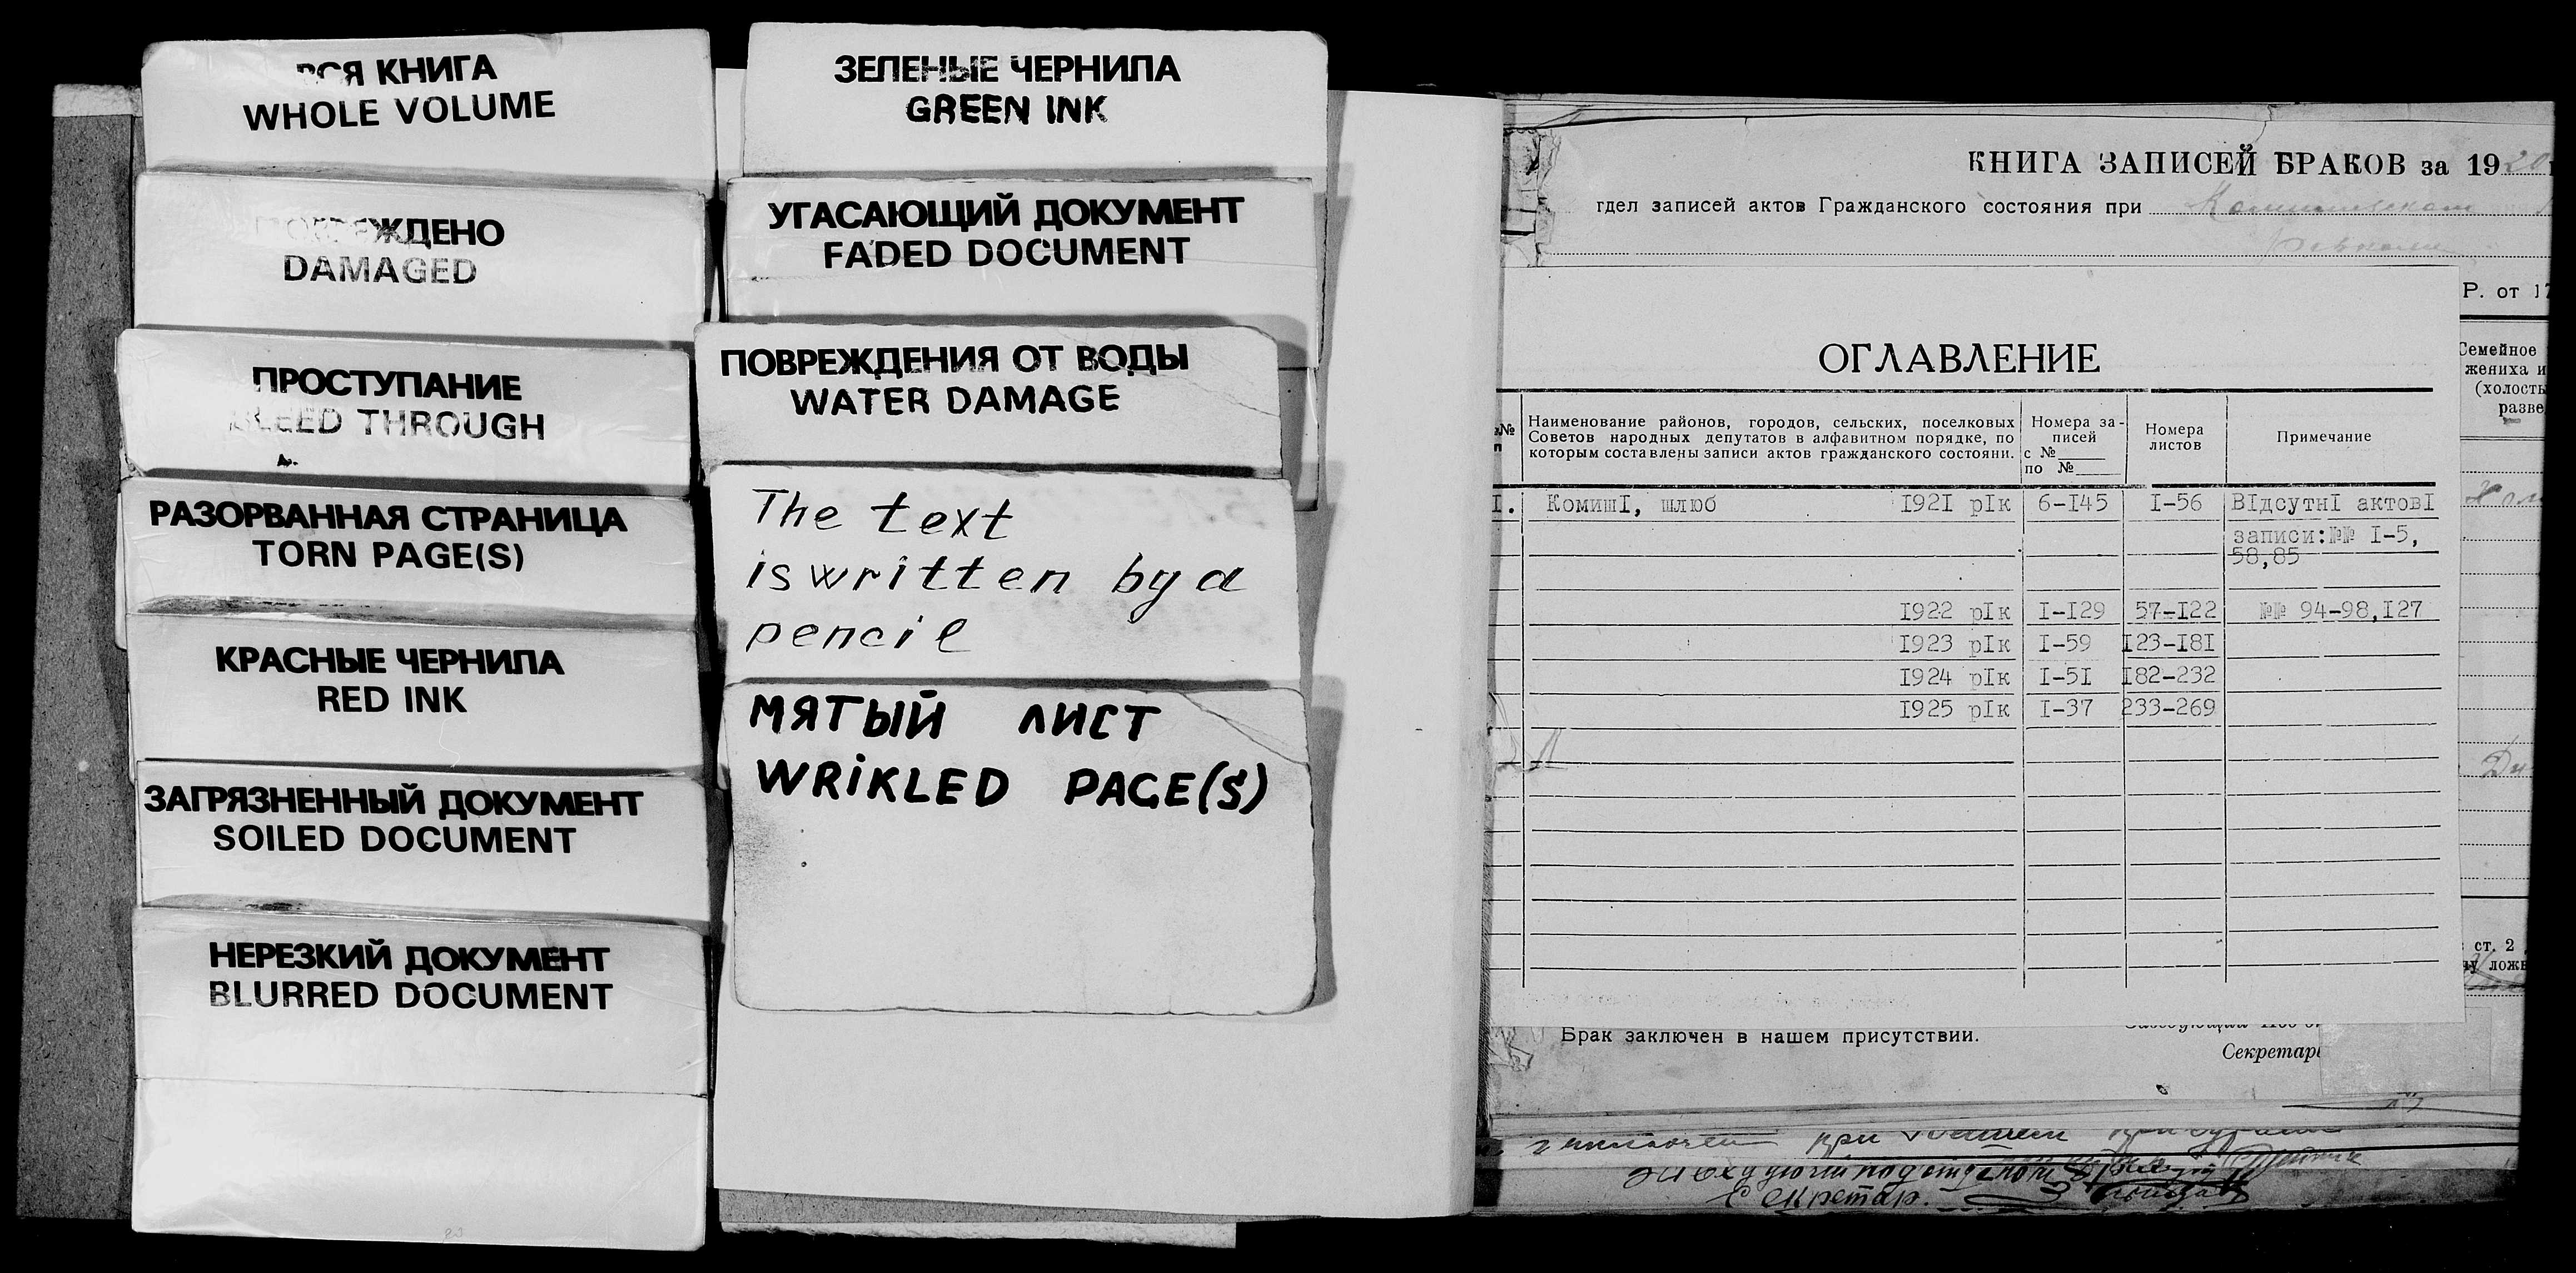 ВСЯ КНИГА
WHOLE VOLUME
ПОВРЕЖДЕНО
DAMAGED
ПРОСТУПАНИЕ
BLEED THROUGH
РАЗОРВАННАЯ СТРАНИЦА
TORN PAGE(S)
КРАСНЫЕ ЧЕРНИЛА
RED INK
ЗАГРЯЗНЕННЫЙ ДОКУМЕНТ
SOILED DOCUMENT
НЕРЕЗКИЙ ДОКУМЕНТ
BLURRED DOCUMENT
ЗЕЛЕНЫЕ ЧЕРНИЛА
GREEN INK
УГАСАЮЩИЙ ДОКУМЕНТ
FADED DOCUMENT
ПОВРЕЖДЕНИЯ ОТ ВОДЫ
WATER DAMAGE
The text
is written by a
pencil
МЯТЫЙ ЛИСТ
WRiKLED PAGE(S)
КНИГА ЗАПИСЕЙ БРАКОВ за 1920
тдел записей актов Гражданского состояния при
Р. от 17
ОГЛАВЛЕНИЕ
Семейное
жениха и
(холосты
разве
№ Наименование районов, городов, сельских, поселковых Советов народных депутатов в алфавитном порядке, по которым составлены записи актов гражданского состояни. Номера записей с № по № Номера листов Примечание
I. КомишI, шлюб I92I рIк 6-I45 I-56 ВIдсутнI актовI
записи:№№ I-5,
58,85
I922 рIк I-I29 57-I22 №№ 94-98,I27
I923 рIк I-59 I23-I8I
I924 рIк I-5I I82-232
I925 рIк I-37 233-269
ст. 2
ложь
Брак заключен в нашем присутствии.
Секретарь
при
Секретар.